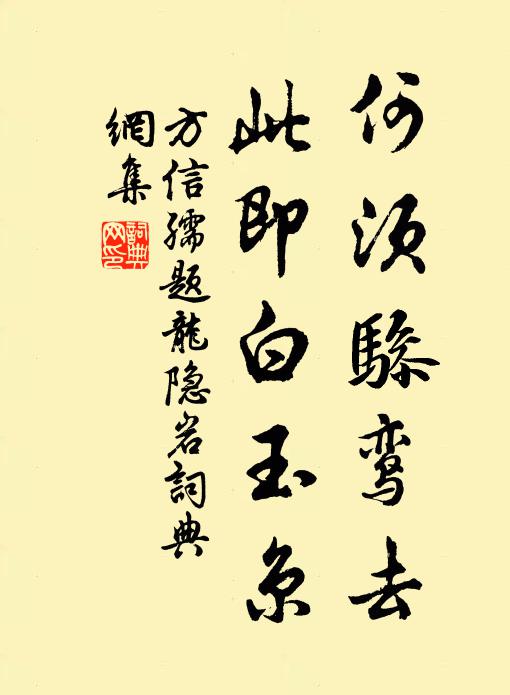 何须驂鸾去
此即白玉京
方信孺题龍隐岩詞典
網集
詞典網印